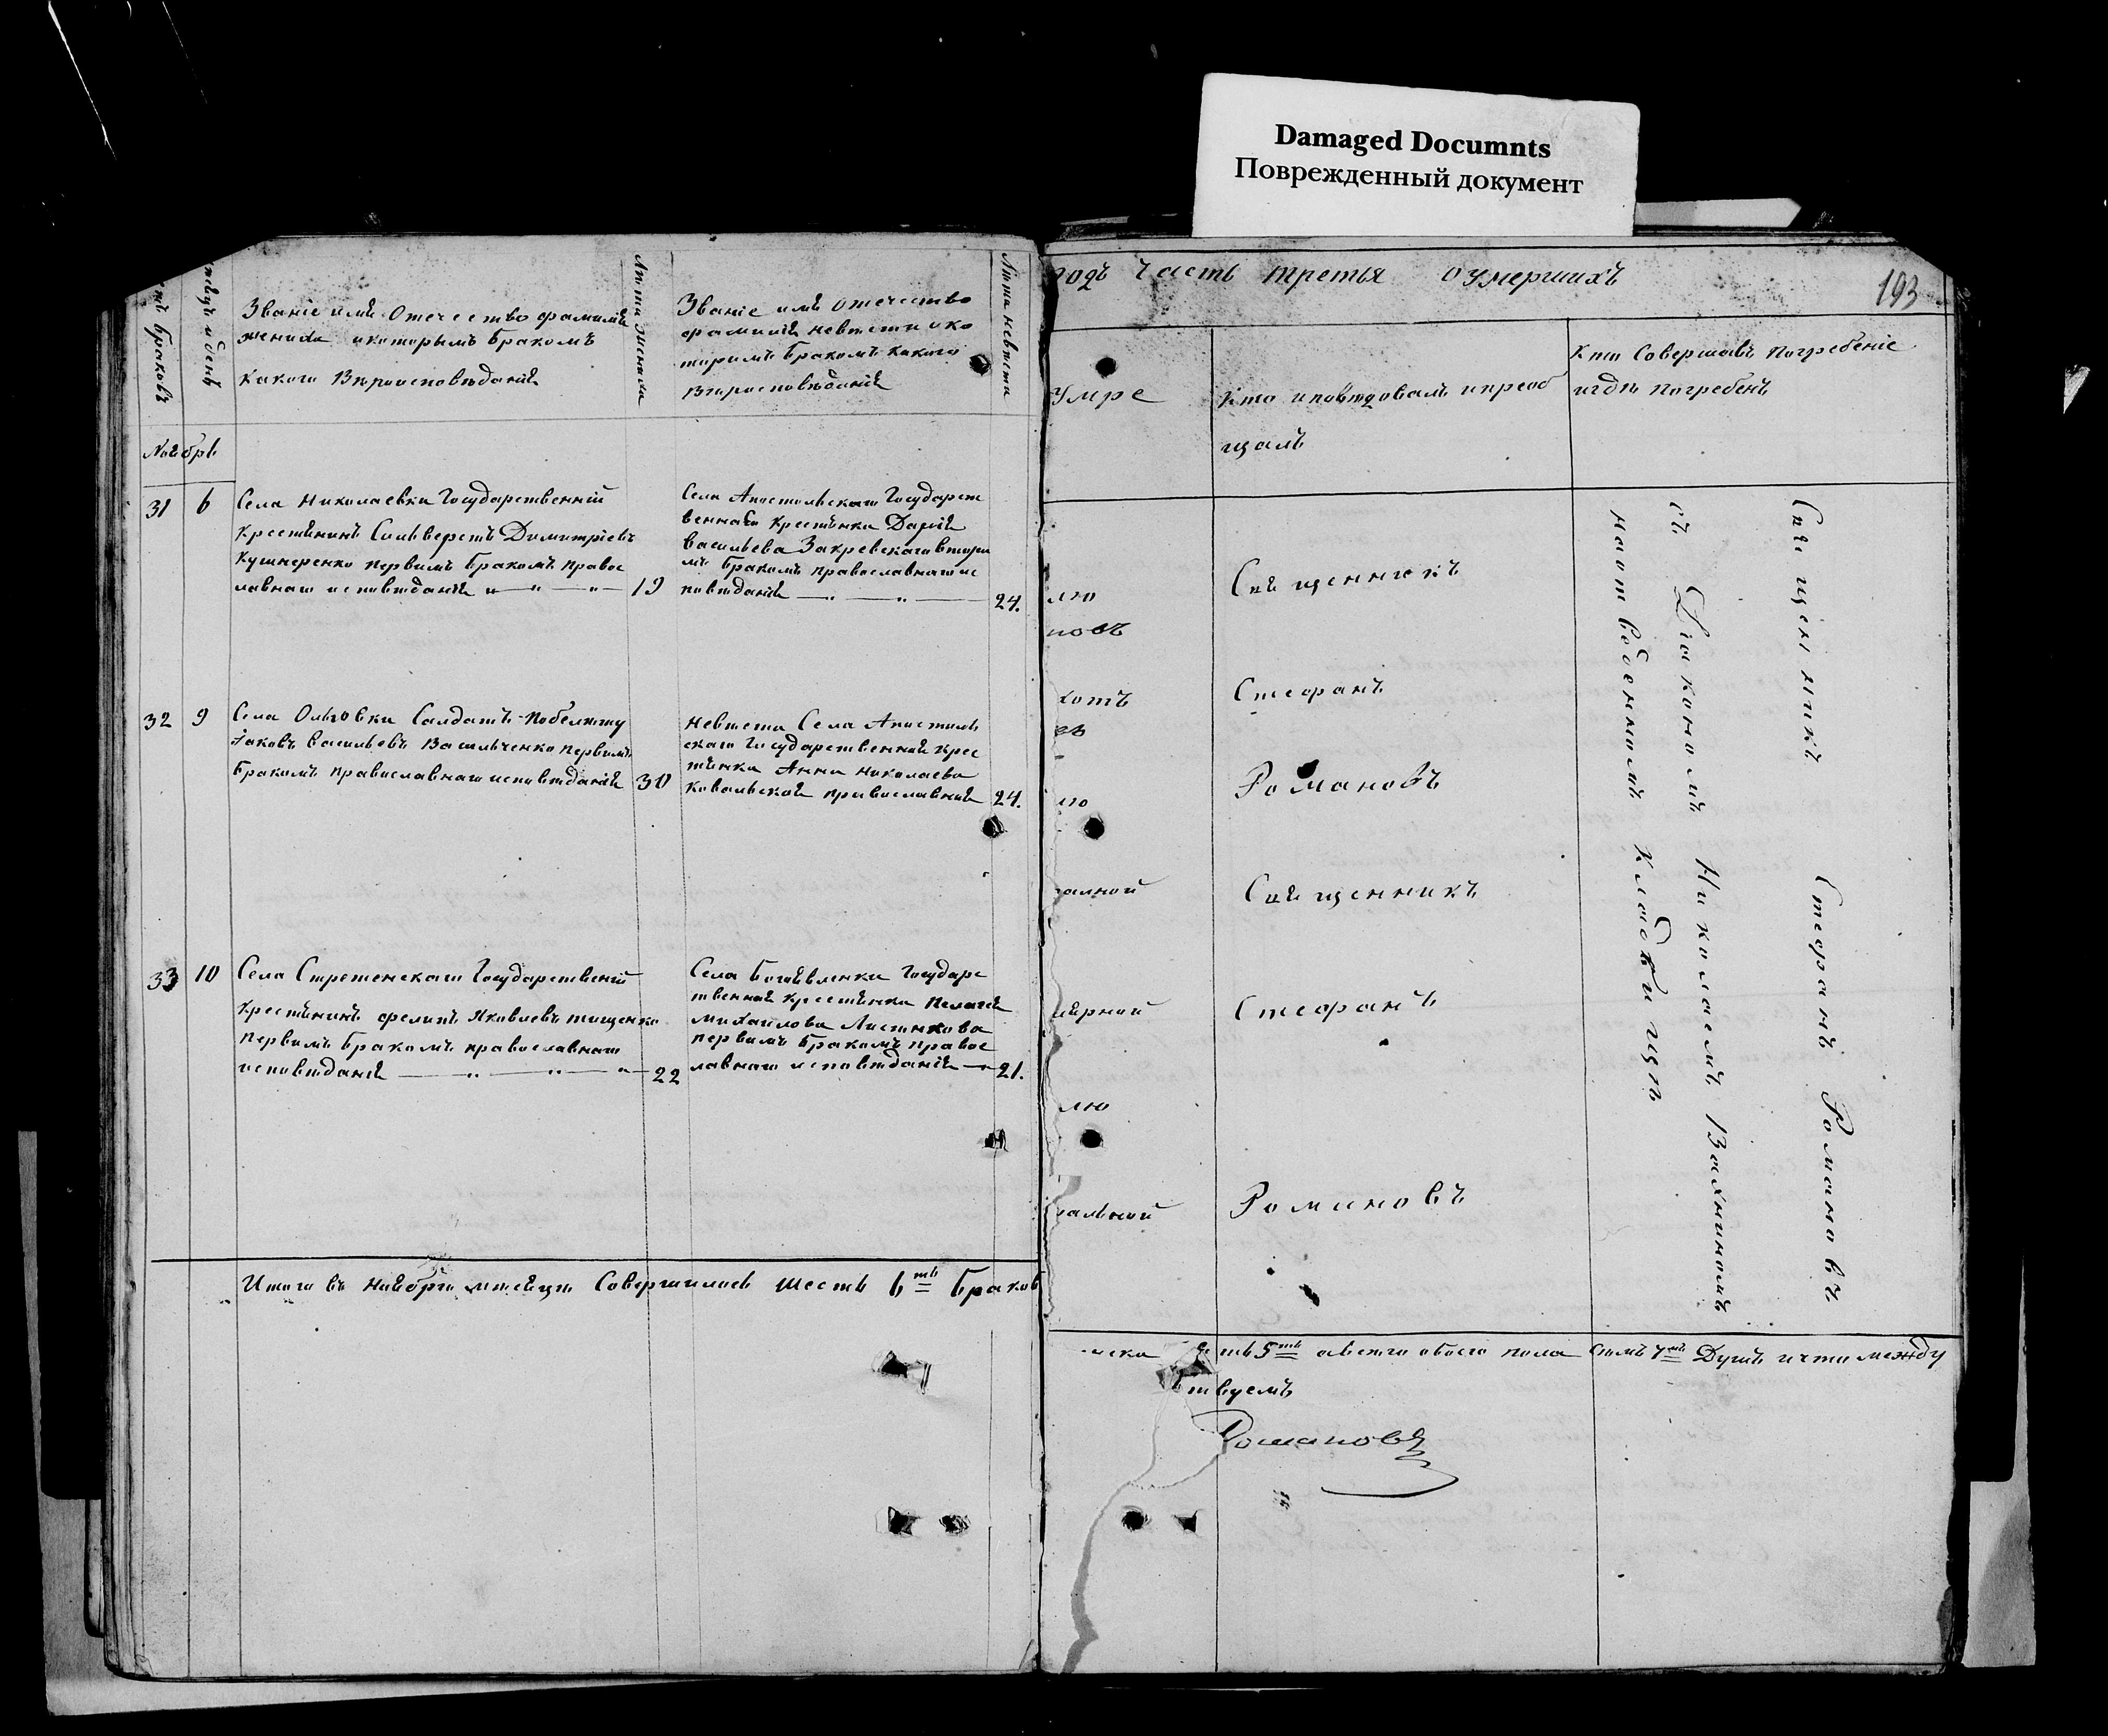 Damaged Documnts
Поврежденный документ
браковъ
Званіе имѣ Отечество фамиліѣ
жениха и которымъ бракомъ
какого Вѣроисповѣданіѣ
Лѣта жениха
Званіе имѣ отечество
фамиліѣ невѣсты и ко
торымъ бракомъ какого
Вѣроисповѣданіѣ
Лѣта невѣсты
Ноѣбрь
31 6
Села Николаевки Государственній
Крестѣнинъ Сильверстъ Димитріевъ
Кушнеренко первимъ бракомъ правос
лавнаго исповѣданіѣ 19
Села Апостольскаго Государст
веннаѣ крестѣнка Даріѣ
Васильева Закревскаго вторы
мъ бракомъ православнаго ис
повѣданіѣ 24.
32 9
Села Ольговки Салдатъ
Іаковъ Васильевъ Васильченко первымъ
бракомъ православнаго исповѣданіѣ 30
Невѣста Села Апостоль
скаго Государственнаѣ крес
тѣнка Анна Николаева
Ковальскаѣ православнаѣ 24.
33 10
Села Стретенскаго Государственій
Крестѣнинъ Филипъ Яковлевъ Тищенко
первымъ бракомъ православнаго
исповѣданіѣ 22
Села Богоѣвленки Государс
твеннаѣ крестѣнка Пелагеѣ
Михаилова
первымъ бракомъ правос
лавнаго исповѣданіѣ 21.
Итого въ ноѣбрѣ мѣсѣцѣ Совершилось шесть 6ть браков
годъ Часть третья о умершихъ
193
Умре
Кто исповѣдовалъ и приоб
щалъ
Кто Совершавъ погребеніе
и гдѣ погребенъ
Свѣщенникъ
Стефанъ
Романовъ
Свѣщенникъ
Стефанъ
Романовъ
Свѣщенникъ Стефанъ Романовъ
съ Діакономъ Николаемъ Вахнинимъ
на отведенномъ кладбищѣ
ть 5ть а всего обоего пола семь 7мь Душъ и что между
твуемъ
Романовъ